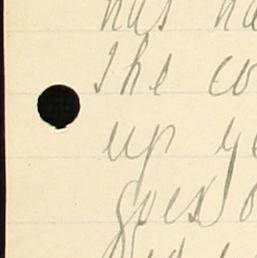 has ha
The co
up ye
goes o